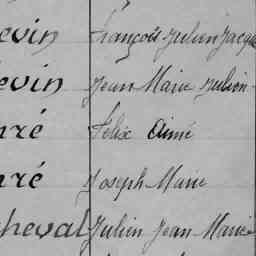 evin François Julien Jacqu
evin Jean Marie Julien
nré Félix Aimé
nré Joseph Marie
cheval Julien Jean Marie